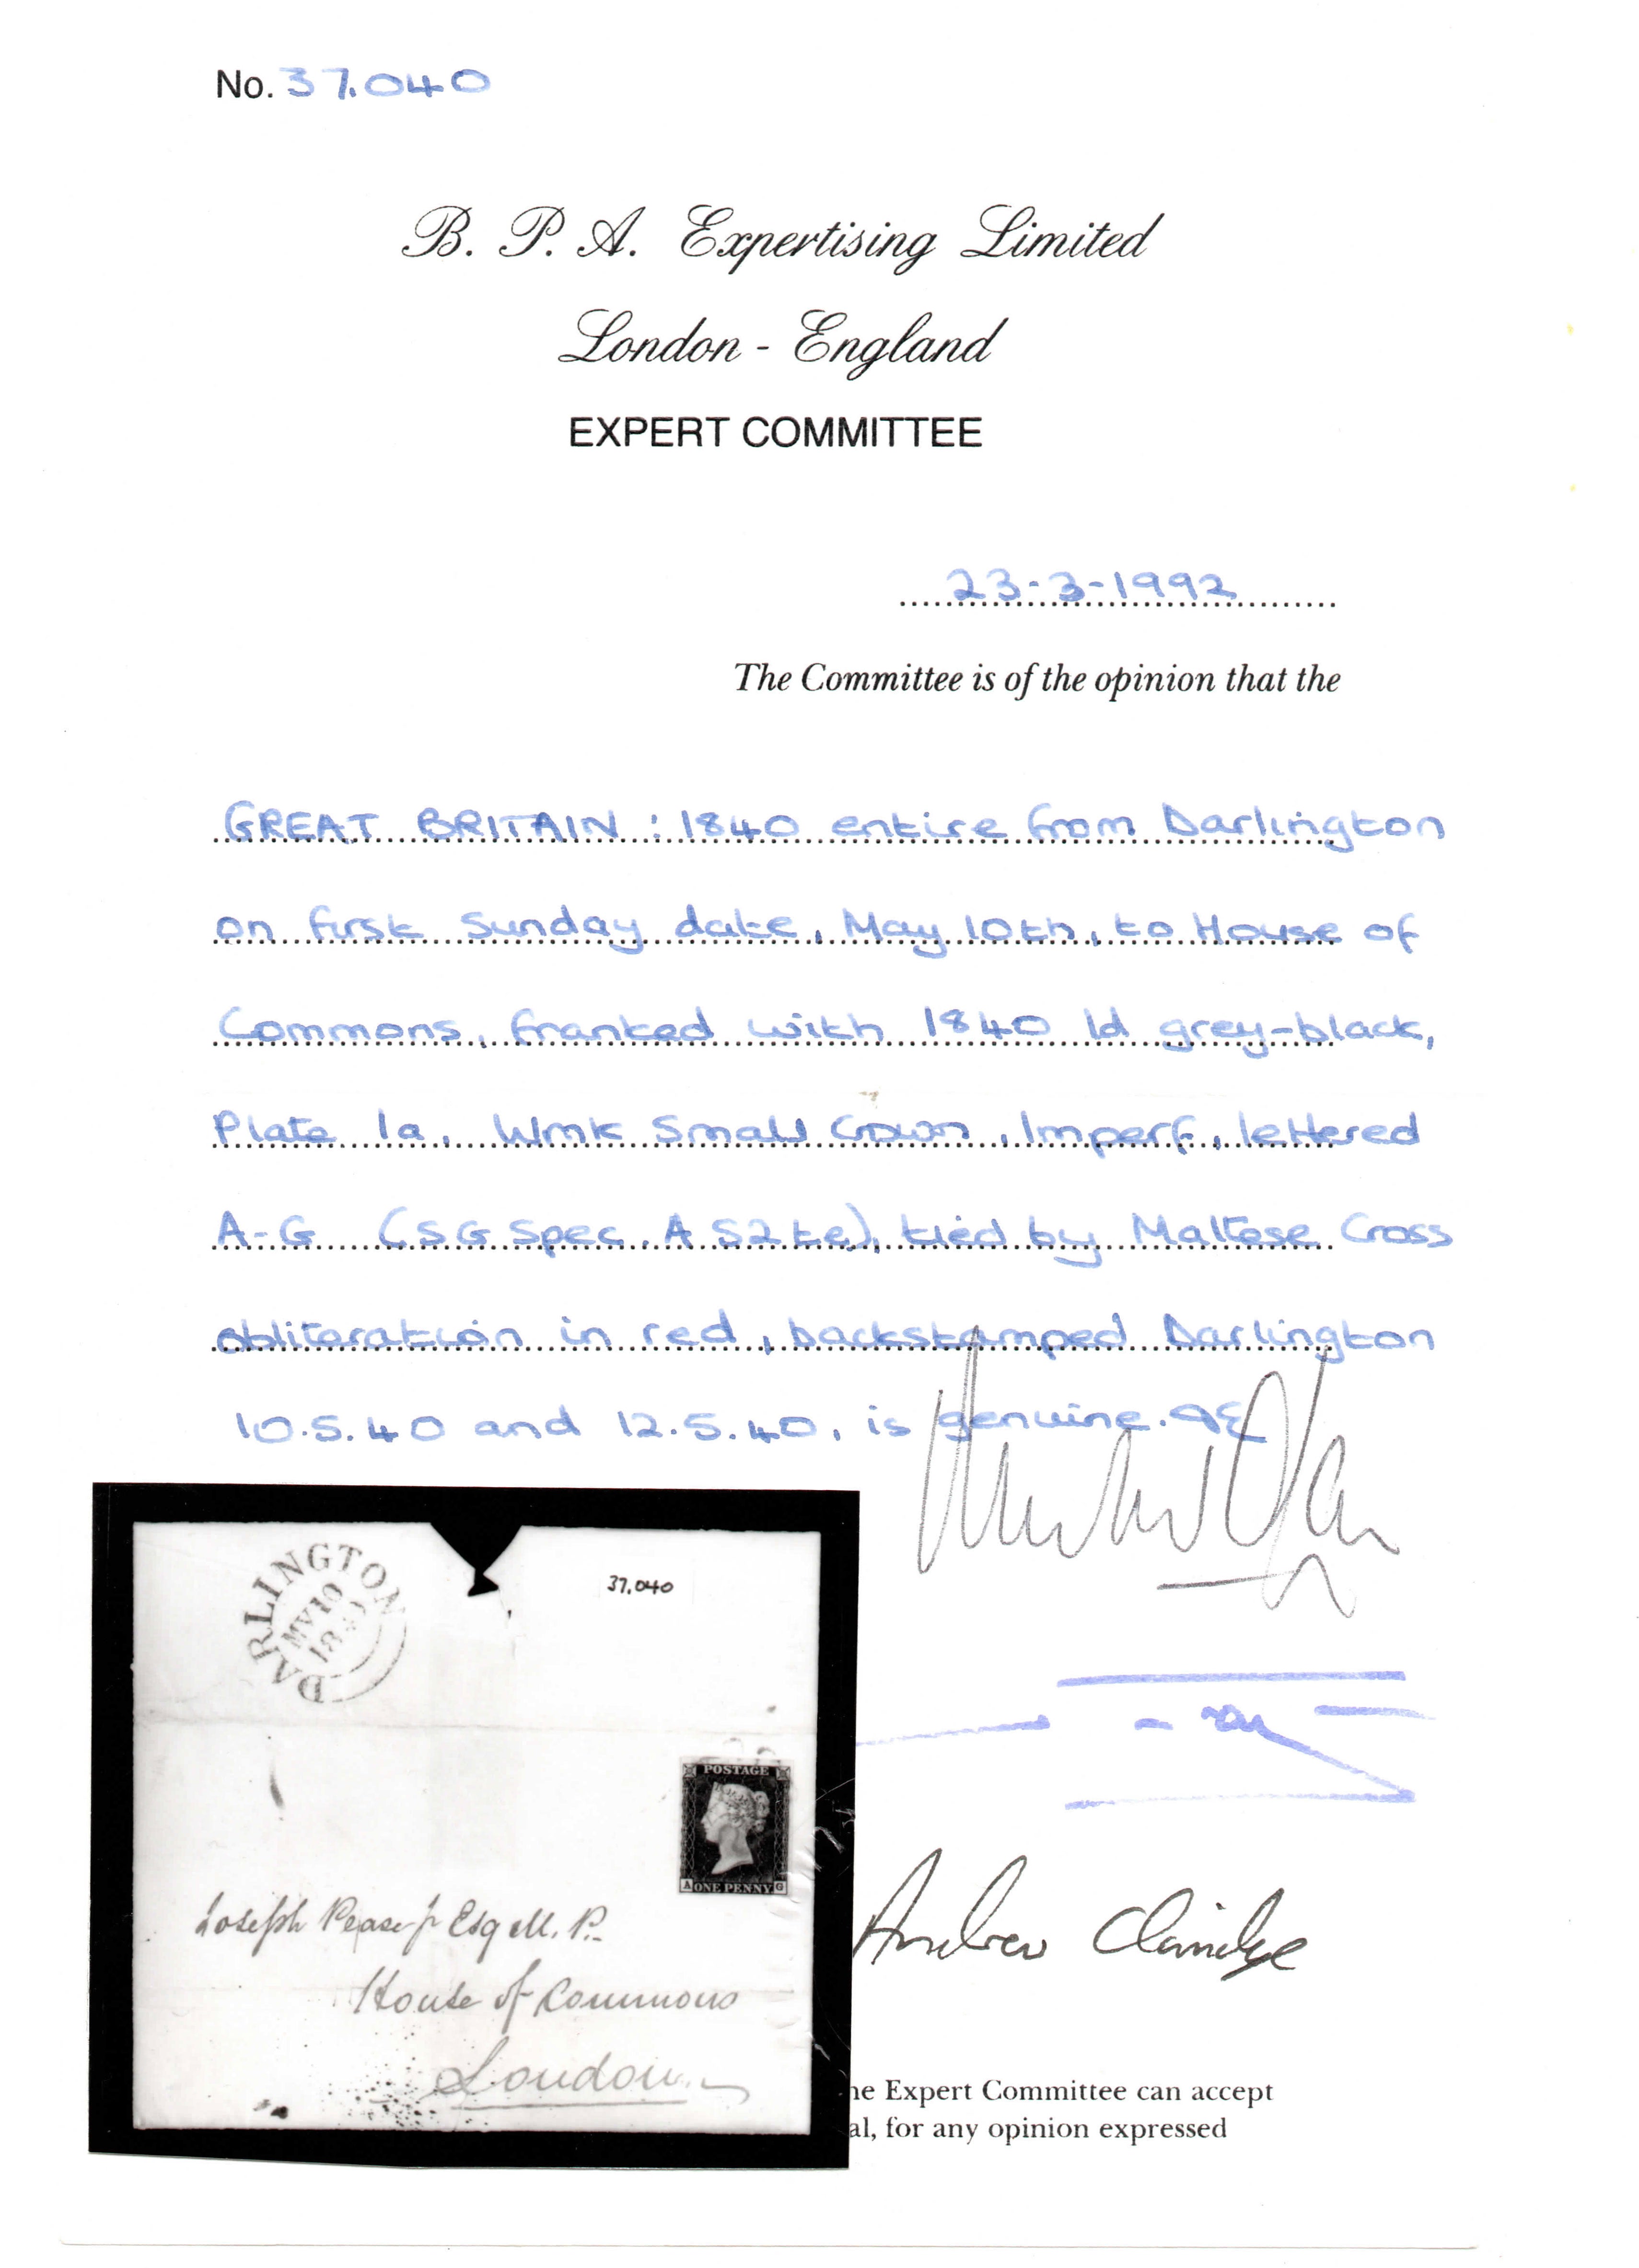 No. 37.040
B. P. A. Expertising Limited
London - England
EXPERT COMMITTEE
23-3-1992
The Committee is of the opinion that the
GREAT BRITAIN : 1840 entire from Darlington
on first Sunday date, May 10th, to House of
Commons, franked with 1840 1d grey-black,
Plate 1a, Wmk Small Crown, Imperf, lettered
A-G (SG Spec. AS2te), tied by Maltese Cross
obliteration in red, backstamped Darlington
10.5.40 and 12.5.40, is genuine.
DARLINGTON
MY10
1840
37.040
POSTAGE
A ONE PENNY G
Joseph Pease jr Esq M.P.
House of Commons
London
Andrew Claridge
he Expert Committee can accept
al, for any opinion expressed